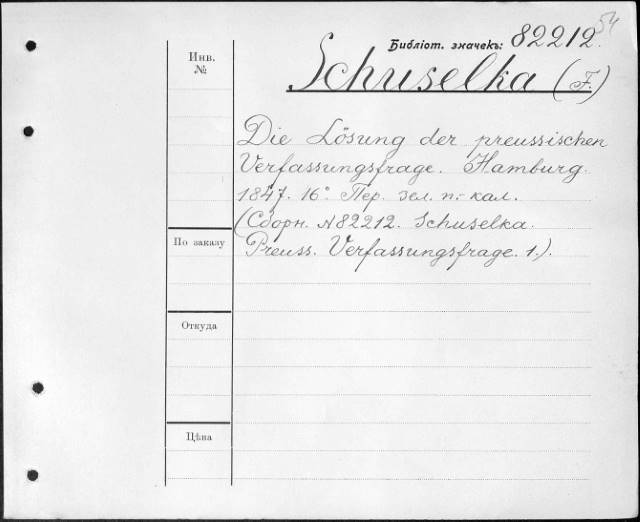 54
Библіот. значекъ: 82212.
Инв.
№
Schuselka (F.)
Die Lösung der preussischen
Verfassungsfrage. Hamburg
1847. 16°. Пер. зел. п.- кал.
(Сборн. № 82212. Schuselka.
Preuss. Verfassungsfrage. 1.).
По заказу
Откуда
Цѣна